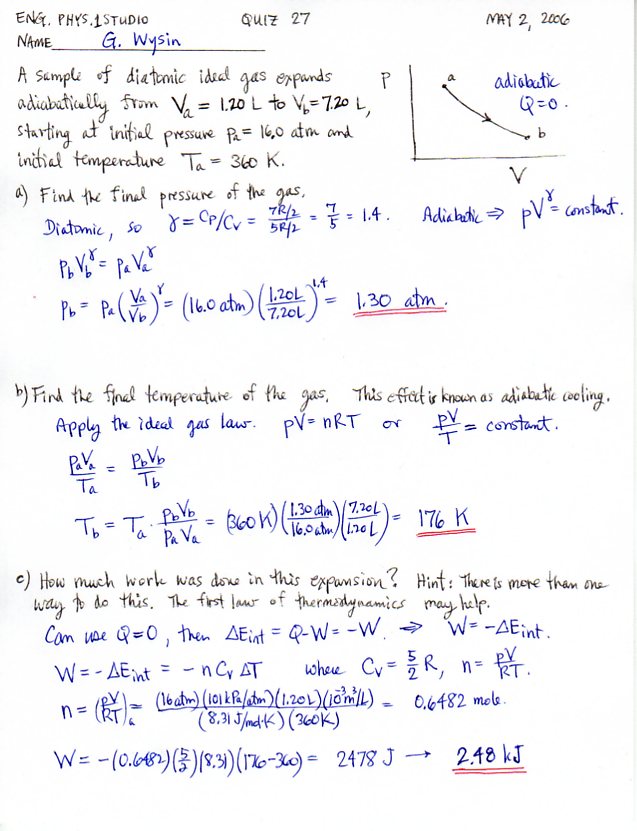 ENG. PHYS. 1 STUDIO QUIZ 27 MAY 2, 2006
NAME G. Wysin
A sample of diatomic ideal gas expands
adiabatically from Va = 1.20 L to Vb = 7.20 L,
starting at initial pressure Pa = 16.0 atm and
initial temperature Ta = 360 K.
P a adiabatic
Q=0.
b
V
a) Find the final pressure of the gas.
Diatomic, so γ = CP/CV = (7R/2)/(5R/2) = 7/5 = 1.4. Adiabatic ⇒ pV^γ = constant.
PbVb^γ = PaVa^γ
Pb = Pa (Va/Vb)^γ = (16.0 atm) (1.20L/7.20L)^1.4 = 1.30 atm.
b) Find the final temperature of the gas. This effect is known as adiabatic cooling.
Apply the ideal gas law. pV = nRT or pV/T = constant.
PaVa/Ta = PbVb/Tb
Tb = Ta · PbVb/PaVa = (360 K) (1.30 atm/16.0 atm) (7.20L/1.20L) = 176 K
c) How much work was done in this expansion? Hint: There is more than one
way to do this. The first law of thermodynamics may help.
Can use Q=0, then ΔEint = Q-W = -W. ⇒ W = -ΔEint.
W = -ΔEint = -n CV ΔT where CV = 5/2 R, n = pV/RT.
n = (pV/RT)a = (16 atm)(101 kPa/atm)(1.20 L)(10^-3 m^3/L)/(8.31 J/mol·K)(360K) = 0.6482 mole.
W = -(0.6482)(5/2)(8.31)(176-360) = 2478 J → 2.48 kJ